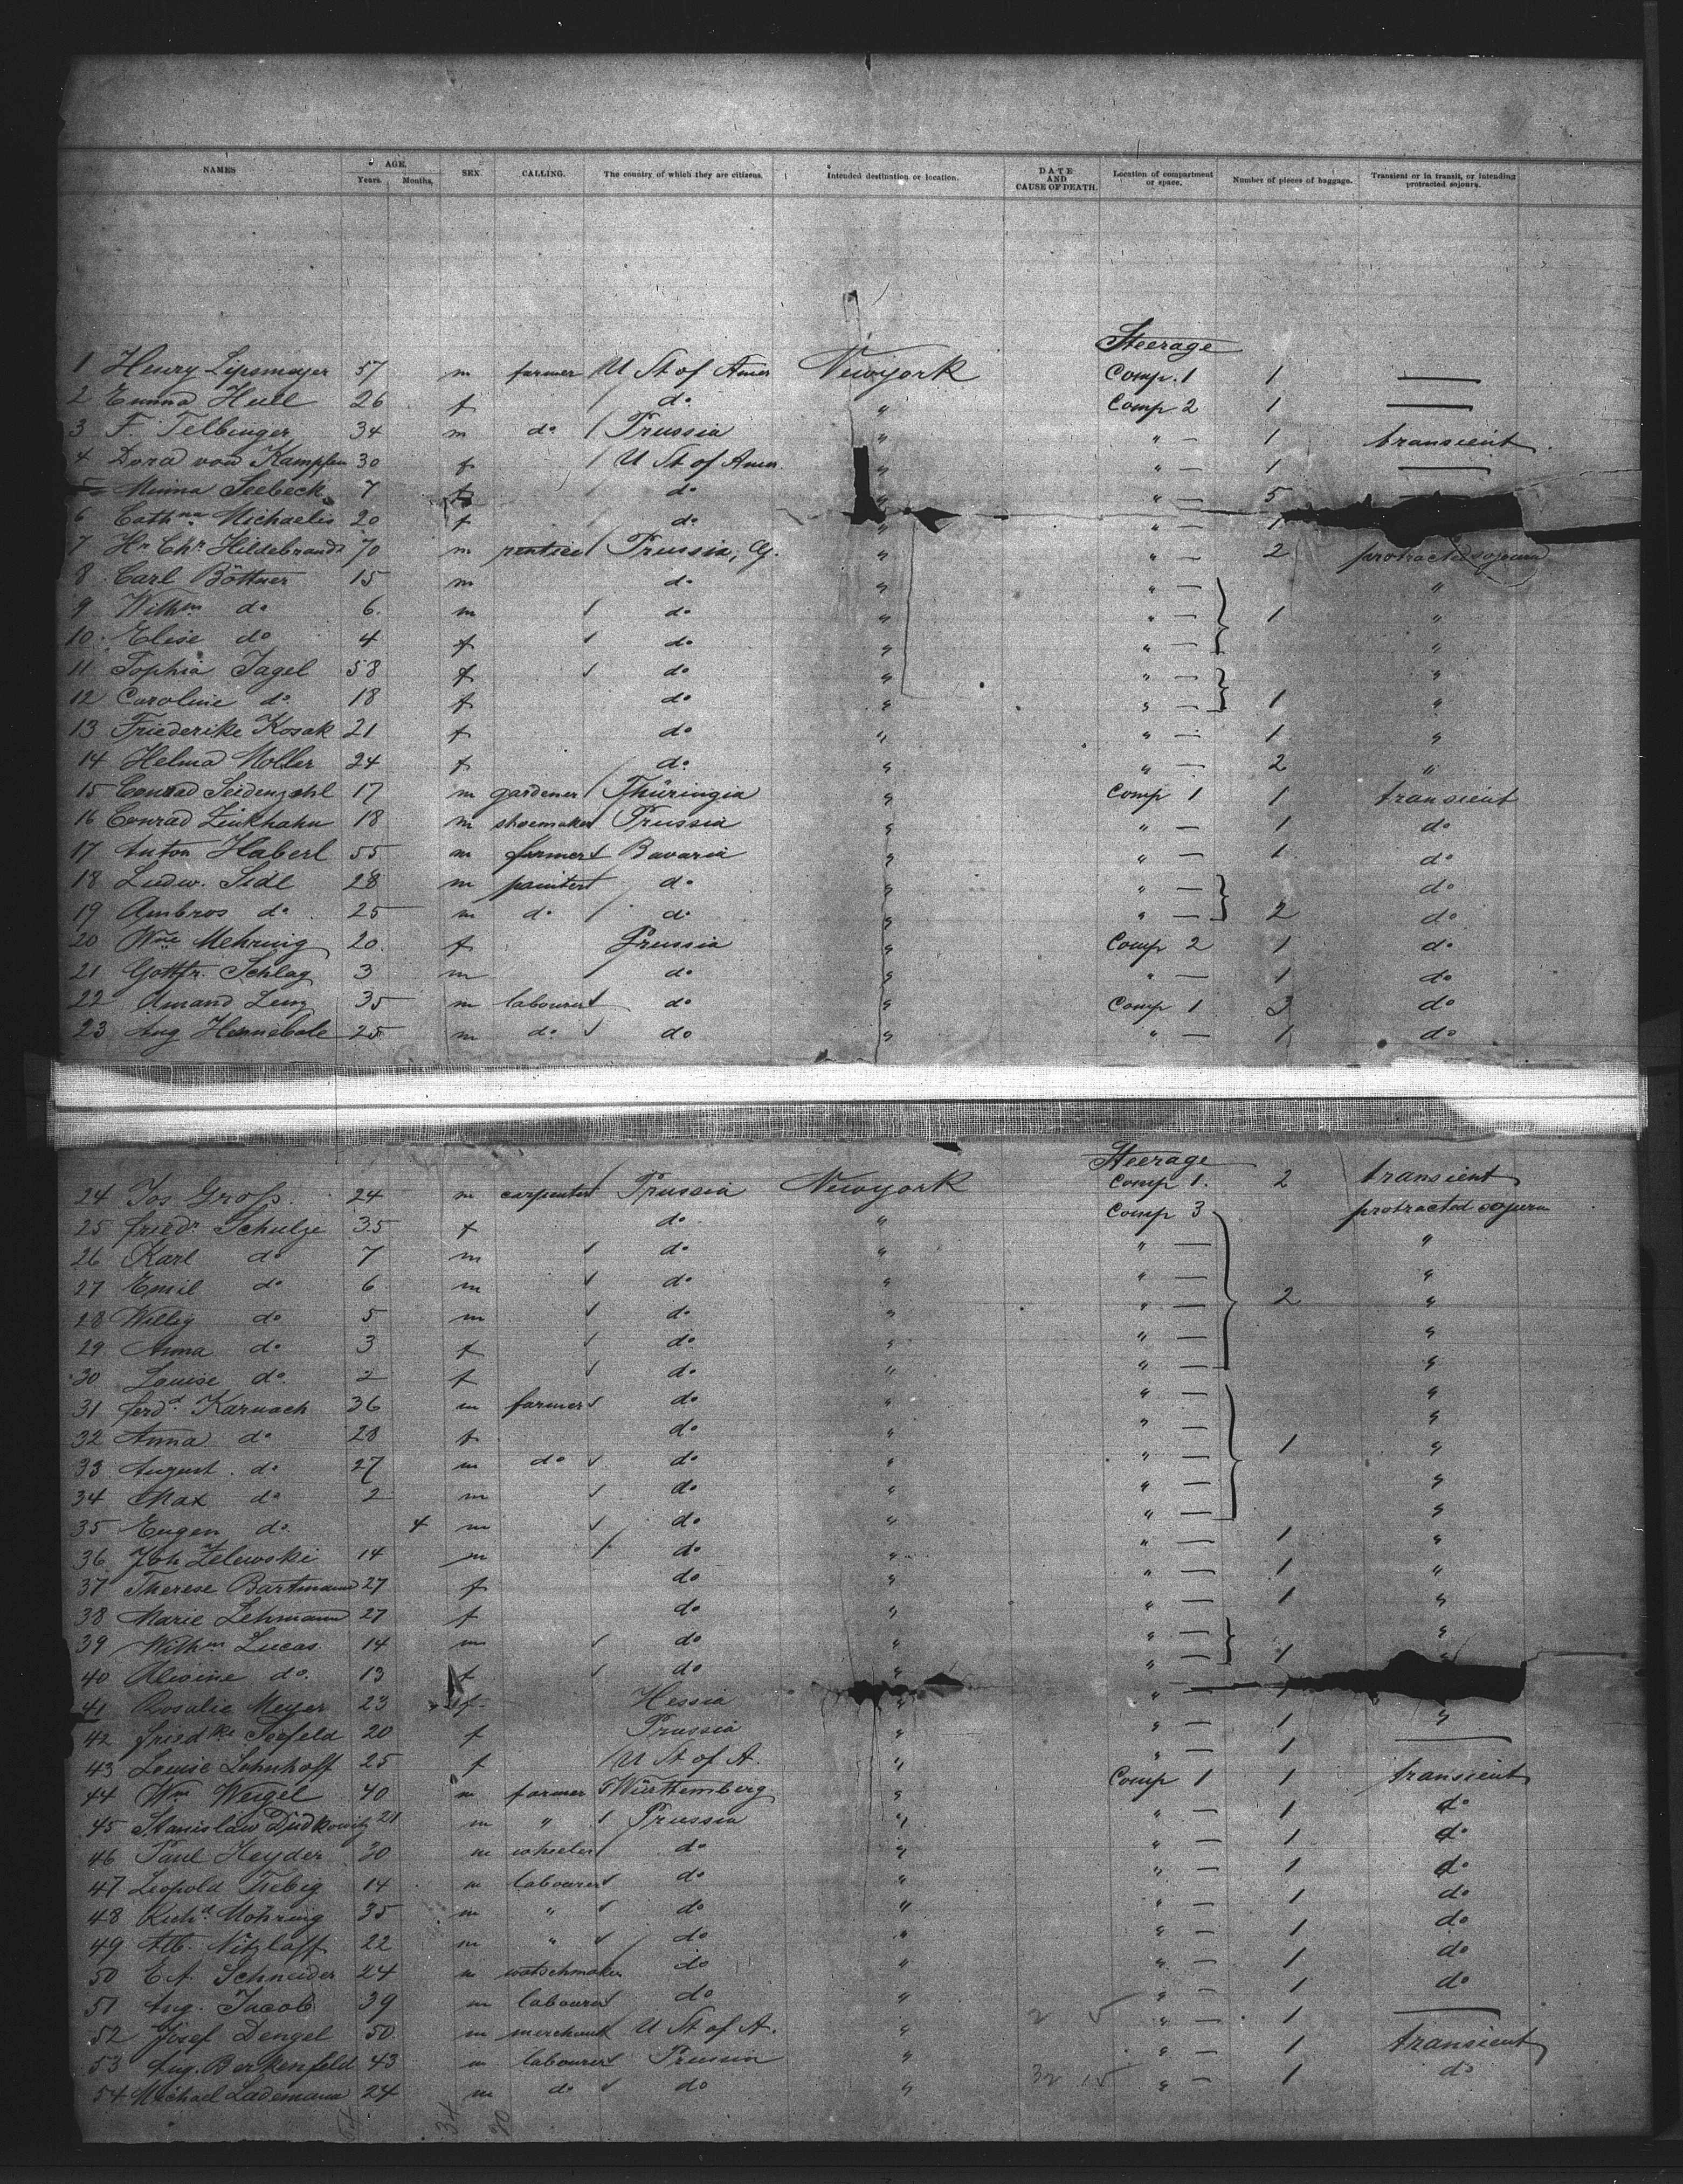 NAMES AGE. Years. Months. SEX. CALLING. The country of which they are citizens. Intended destination or location. DATE AND CAUSE OF DEATH. Location of compartment or space. Number of pieces of baggage. Transient or in transit, or intending protracted sojourn.
Steerage
1 Henry Lipsmeyer 57 m farmer U St of Amer Newyork Comp. 1 1 —
2 Emma Hull 26 f do " Comp 2 1 —
3 F. Telbinger 34 m do Prussia " " — 1 transient
4 Dora von Kampfen 30 f U St of Amer. " " — 1 —
5 Minna Seebeck 7 f do " " — 5
6 Cathna Michaelis 20 f do " " — 1
7 Hr Chr Hildebrandt 70 m rentier Prussia, " " — 2 protracted sojourn
8 Carl Böttner 15 m do " " — "
9 Wilhm do 6 m do " " — 1 "
10 Elise do 4 f do " " — "
11 Sophia Jagel 58 f do " " — "
12 Caroline do 18 f do " " — 1 "
13 Friederike Kosak 21 f do " " — 1 "
14 Helma Moller 24 f do " " — 2 "
15 Conrad Seidenzahl 17 m gardener Thüringia " Comp 1 1 transient
16 Conrad Zinkhahn 18 m shoemaker Prussia " " — 1 do
17 Anton Haberl 55 m farmer Bavaria " " — 1 do
18 Ludw. Sidl 28 m painter do " " — do
19 Ambros do 25 m do do " " — 2 do
20 Wme Mehring 20 f Prussia " Comp 2 1 do
21 Gottfr. Schlag 3 m do " " — 1 do
22 Amand Lenz 35 m labourer do " Comp 1 3 do
23 Aug Hennebole 25 m do do " " — 1 do
Steerage
24 Jos Groß. 24 m carpenter Prussia Newyork Comp 1. 2 transient
25 friedr Schulze 35 f do " Comp 3 protracted sojurn
26 Karl do 7 m do " " — "
27 Emil do 6 m do " " — "
28 Willy do 5 m do " " — 2 "
29 Anna do 3 f do " " — "
30 Louise do 2 f do " " — "
31 ferdd Karnach 36 m farmer do " " — "
32 Anna do 28 f do " " — "
33 August do 27 m do do " " — 1 "
34 Max do 2 m do " " — "
35 Eugen do 4 m do " " — "
36 Joh Zelewski 14 m do " " — 1 "
37 Therese Bartmann 27 f do " " — 1 "
38 Marie Lehmann 27 f do " " — 1 "
39 Wilhm Lucas 14 m do " " — "
40 Alvine do. 13 f do " " — 1 "
41 Rosalie Meyer 23 f Hessia " " — 1
42 friedke Seefeld 20 f Prussia " " — 1 "
43 Louise Lehnhoff 25 f U St of A. " " — 1 —
44 Wm Weigel 40 m farmer Württemberg " Comp 1 1 transient
45 Stanislaw Dudkowitz 21 m " Prussia " " — 1 do
46 Paul Heyder 30 m wheeler do " " — 1 do
47 Leopold Trebig 14 m labourer do " " — 1 do
48 Richd Mohring 35 m " do " " — 1 do
49 Alb. Nitzlaff 22 m " do " " — 1 do
50 E A. Schneider 24 m watschmaker do " " — 1 do
51 Aug. Jacob 39 m labourer do " " — 1 do
52 Josef Dengel 50 m merchant U St of A. " 2 5 " — 1 —
53 Aug. Berkenfeld 43 m labourer Prussia " " — 1 transient
54 Michael Lademann 24 m do do " 32 15 " — 1 do
34 20